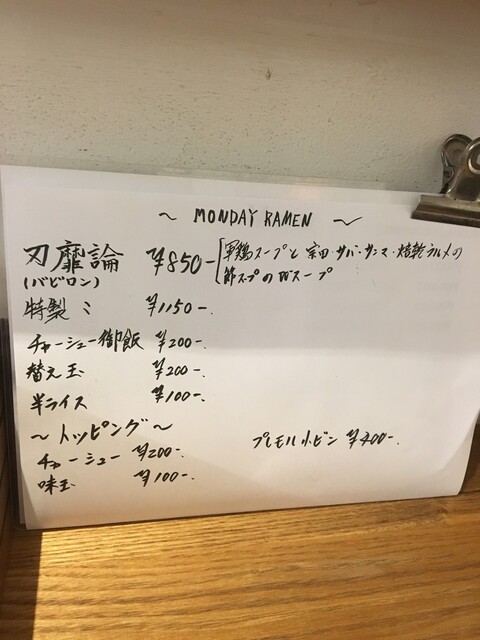 ～ MONDAY RAMEN ～
刃靡論 ¥850- 軍鶏スープと宗田・サバ・サンマ・焙乾ヒラメの
(バビロン) 節スープのWスープ
特製〃 ¥1150-.
チャーシュー御飯 ¥200-.
替え玉 ¥200-.
半ライス ¥100-.
～トッピング～
チャーシュー ¥200-. プレモル小ビン ¥400-.
味玉 ¥100-.